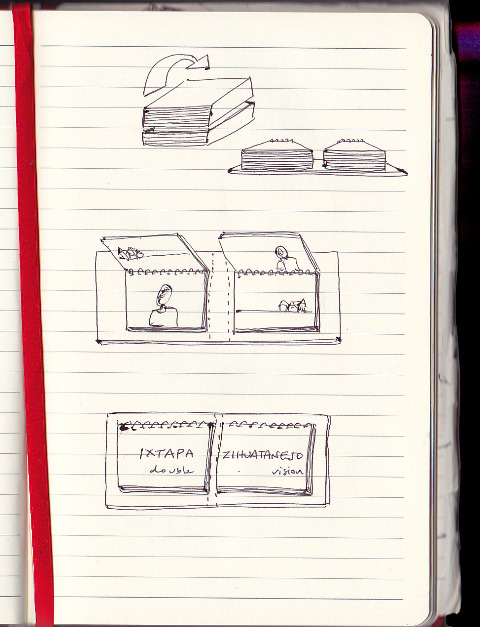 IXTAPA ZIHUATANEJO
double vision